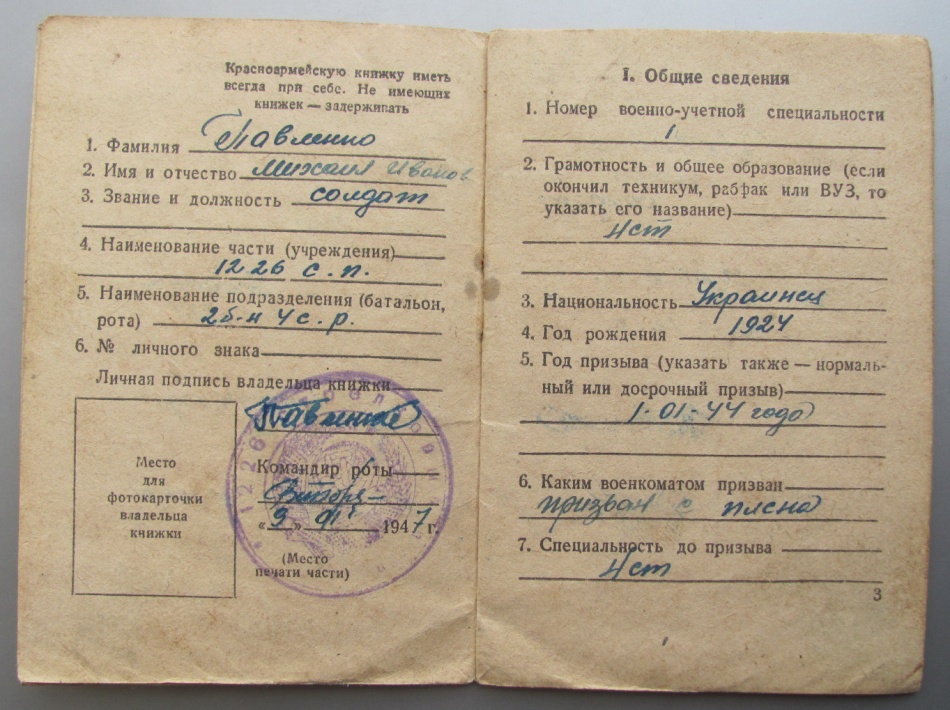 Красноармейскую книжку иметь
всегда при себе. Не имеющих
книжек — задерживать
1. Фамилия Павленко
2. Имя и отчество Михаил Иванов
3. Звание и должность солдат
4. Наименование части (учреждения)
1226 с. п.
5. Наименование подразделения (батальон,
рота) 2 б-н 4 с. р.
6. № личного знака
Личная подпись владельца книжки
Павленко
Место
для
фотокарточки
владельца
книжки
Командир роты
«9» 1947 г.
(Место
печати части)
1226
I. Общие сведения
1. Номер военно-учетной специальности
1
2. Грамотность и общее образование (если
окончил техникум, рабфак или ВУЗ, то
указать его название)
3. Национальность Украинец
4. Год рождения 1924
5. Год призыва (указать также — нормаль-
ный или досрочный призыв)
1-01-44 года
6. Каким военкоматом призван
призван с плена
7. Специальность до призыва
3